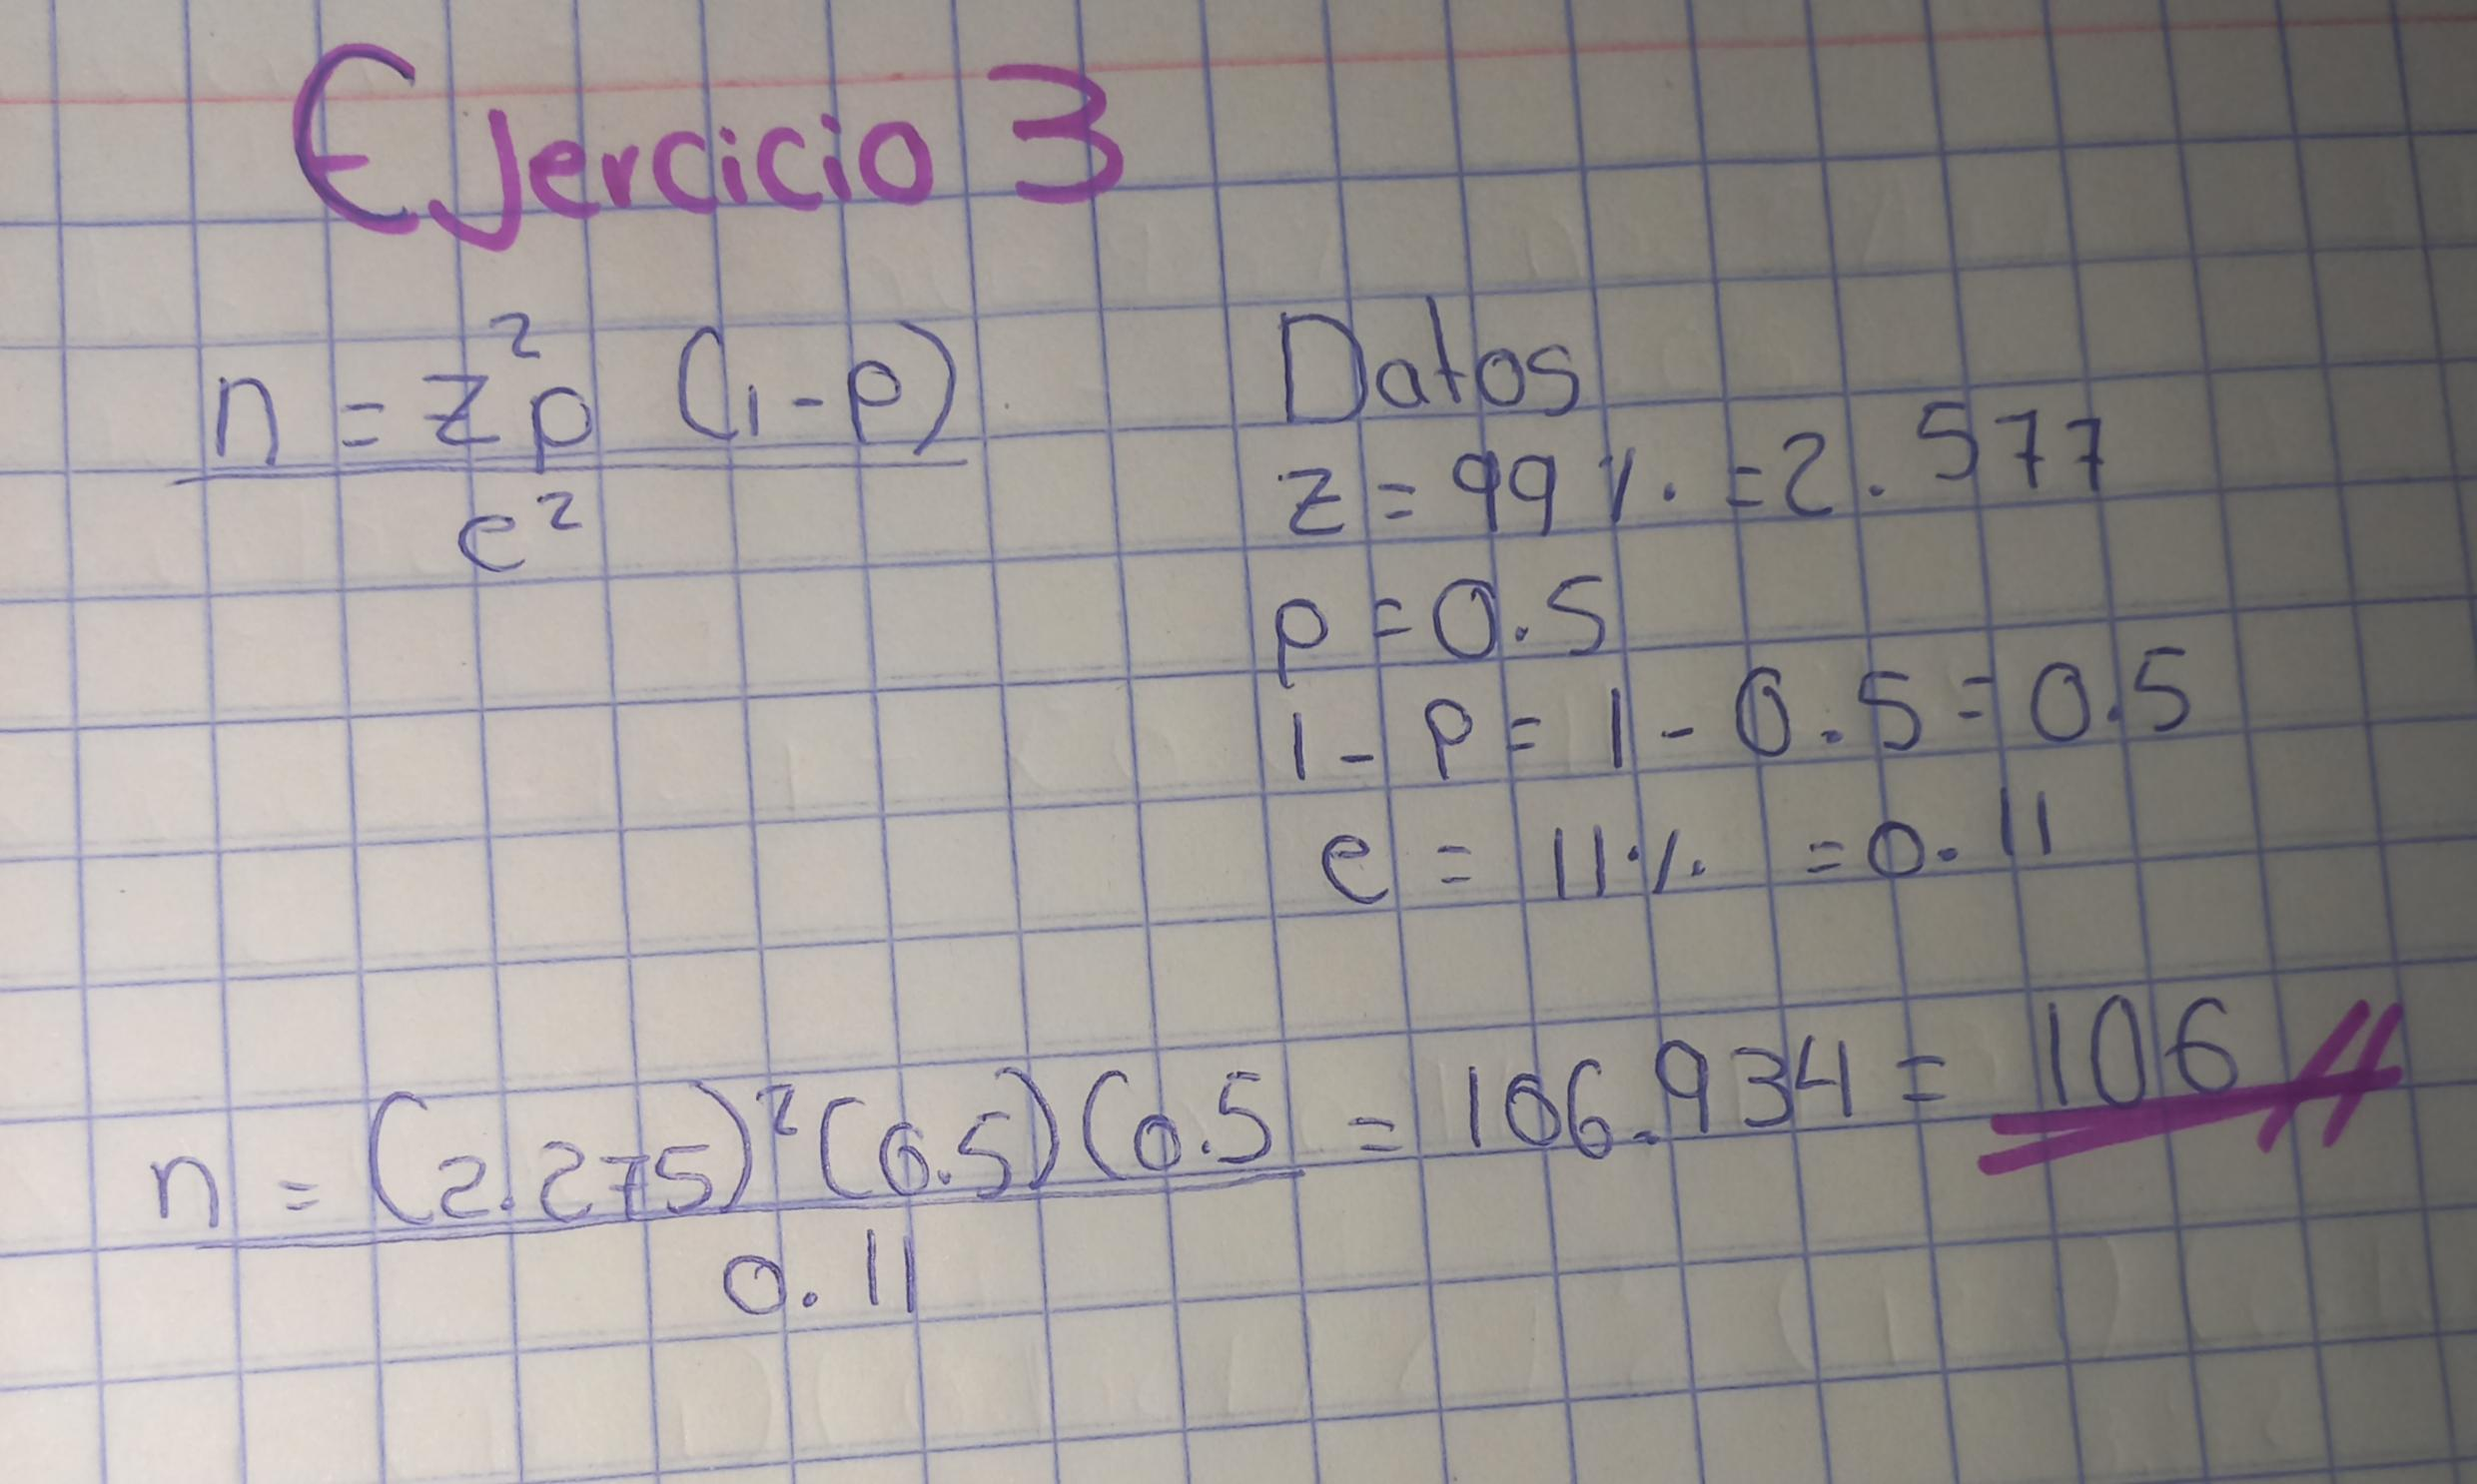 Ejercicio 3
n = z²p (1-p)
e²
Datos
z = 99 % = 2.577
p = 0.5
1 - p = 1 - 0.5 = 0.5
e = 11% = 0.11
n = (2.275)²(0.5)(0.5 = 106.934 = 106
0.11